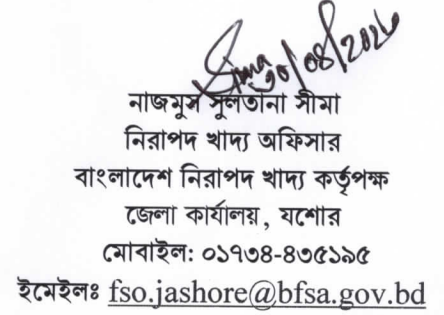 20/08/2026
নাজমুস সুলতানা সীমা
নিরাপদ খাদ্য অফিসার
বাংলাদেশ নিরাপদ খাদ্য কর্তৃপক্ষ
জেলা কার্যালয়, যশোর
মোবাইল: ০১৭৩৪-৪৩৫১৯৫
ইমেইলঃ fso.jashore@bfsa.gov.bd